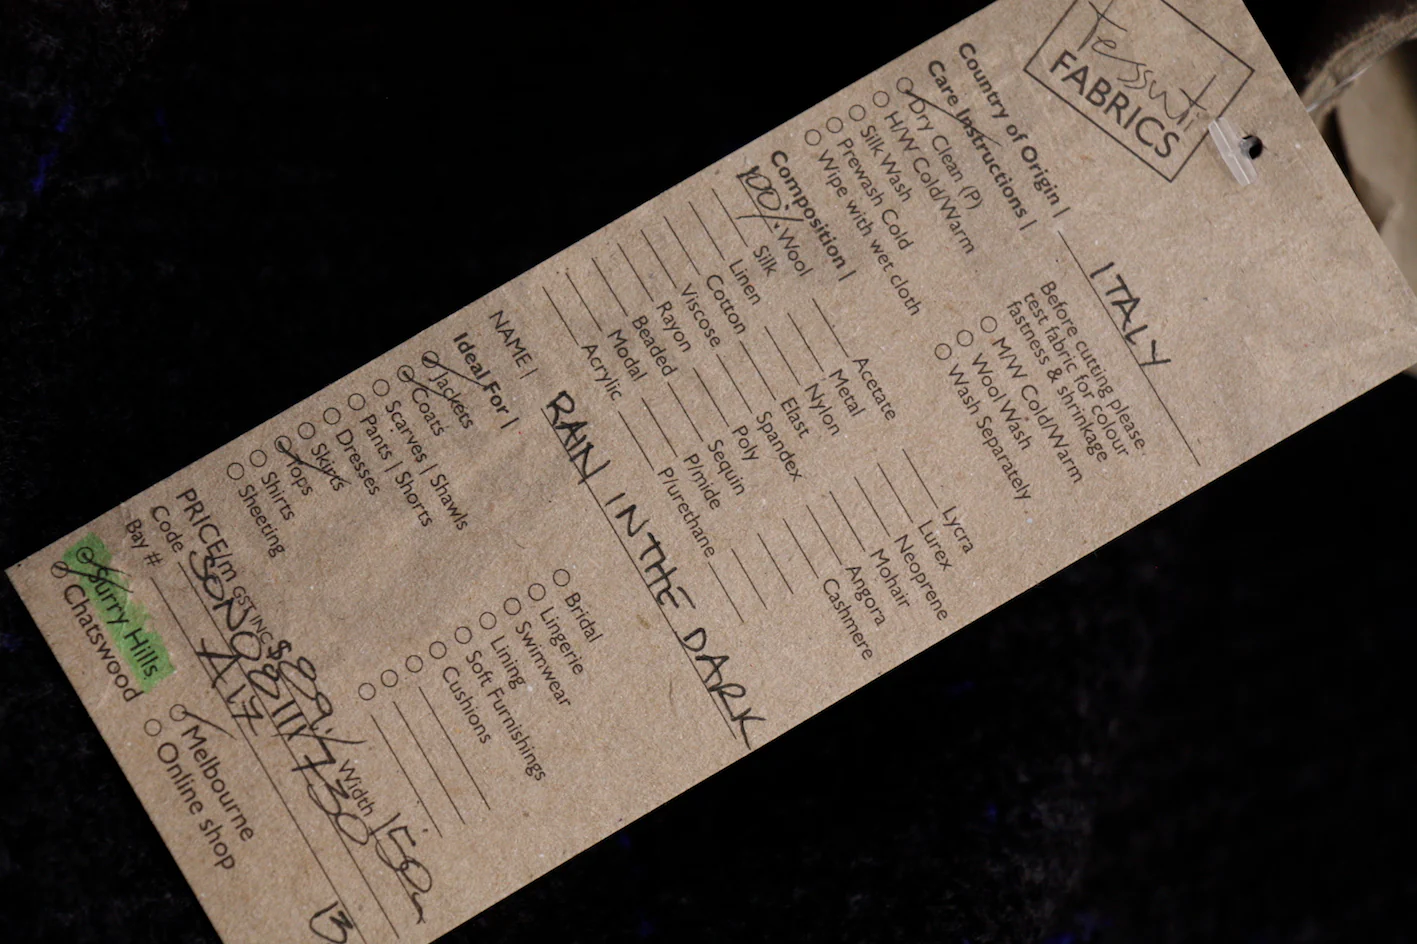 Tessuti
FABRICS
Country of Origin | ITALY
Care Instructions |
Dry Clean (P)
H/W Cold/Warm
Silk Wash
Prewash Cold
Wipe with wet cloth
Before cutting please
test fabric for colour
fastness & shrinkage
M/W Cold/Warm
Wool Wash
Wash Separately
Composition |
100% Wool
Silk
Linen
Cotton
Viscose
Rayon
Beaded
Modal
Acrylic
Acetate
Metal
Nylon
Elast
Spandex
Poly
Sequin
P/mide
P/urethane
Lycra
Lurex
Neoprene
Mohair
Angora
Cashmere
NAME | RAIN IN THE DARK
Ideal For |
Jackets
Coats
Scarves | Shawls
Pants | Shorts
Dresses
Skirts
Tops
Shirts
Sheeting
Bridal
Lingerie
Swimwear
Lining
Soft Furnishings
Cushions
PRICE/m GST INC $89. Width 150
Code
Bay # 13
Surry Hills
Chatswood
Melbourne
Online shop